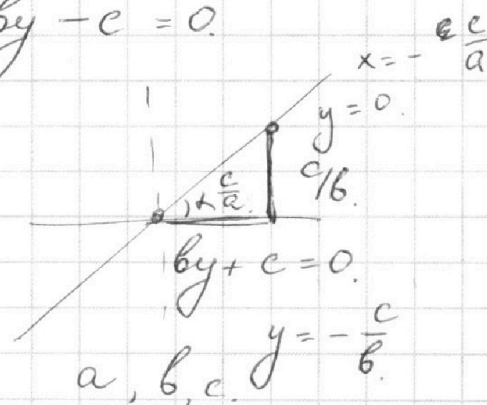 by - c = 0.
x = - c/a
y = 0.
c/b.
+ c/a.
by + c = 0.
y = - c/b.
a, b, c.